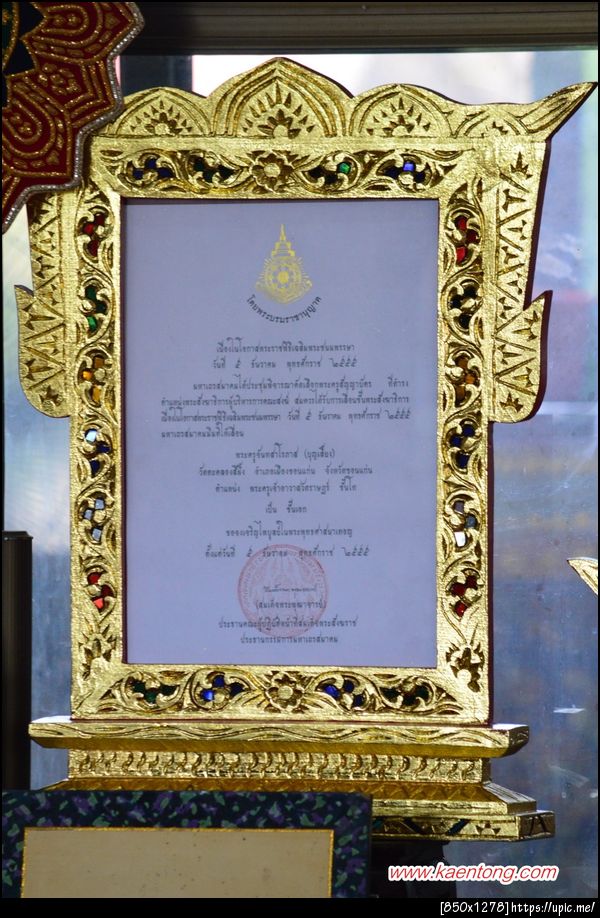 โดยพระบรมราชานุญาต
เนื่องในโอกาสพระราชพิธีเฉลิมพระชนมพรรษา
วันที่ ๕ ธันวาคม พุทธศักราช ๒๕๕๕
มหาเถรสมาคมได้ประชุมพิจารณาคัดเลือกพระครูสัญญาบัตร ที่ดำรง
ตำแหน่งพระสังฆาธิการผู้บริหารการคณะสงฆ์ สมควรได้รับการเลื่อนชั้นพระสังฆาธิการ
เนื่องในโอกาสพระราชพิธีเฉลิมพระชนมพรรษา วันที่ ๕ ธันวาคม พุทธศักราช ๒๕๕๕
มหาเถรสมาคมมีมติให้เลื่อน
พระครูจันทสโรภาส (บุญเสี่ยง)
อำเภอเมืองขอนแก่น จังหวัดขอนแก่น
ตำแหน่ง พระครูเจ้าอาวาสวัดราษฎร์ ชั้นโท
เป็น ชั้นเอก
ขอจงเจริญไพบูลย์ในพระพุทธศาสนาเทอญ
ตั้งแต่วันที่ ๕ ธันวาคม พุทธศักราช ๒๕๕๕
(สมเด็จพระพุฒาจารย์)
ประธานคณะผู้ปฏิบัติหน้าที่สมเด็จพระสังฆราช
ประธานกรรมการมหาเถรสมาคม
www.kaentong.com
[850x1278]https://upic.me/